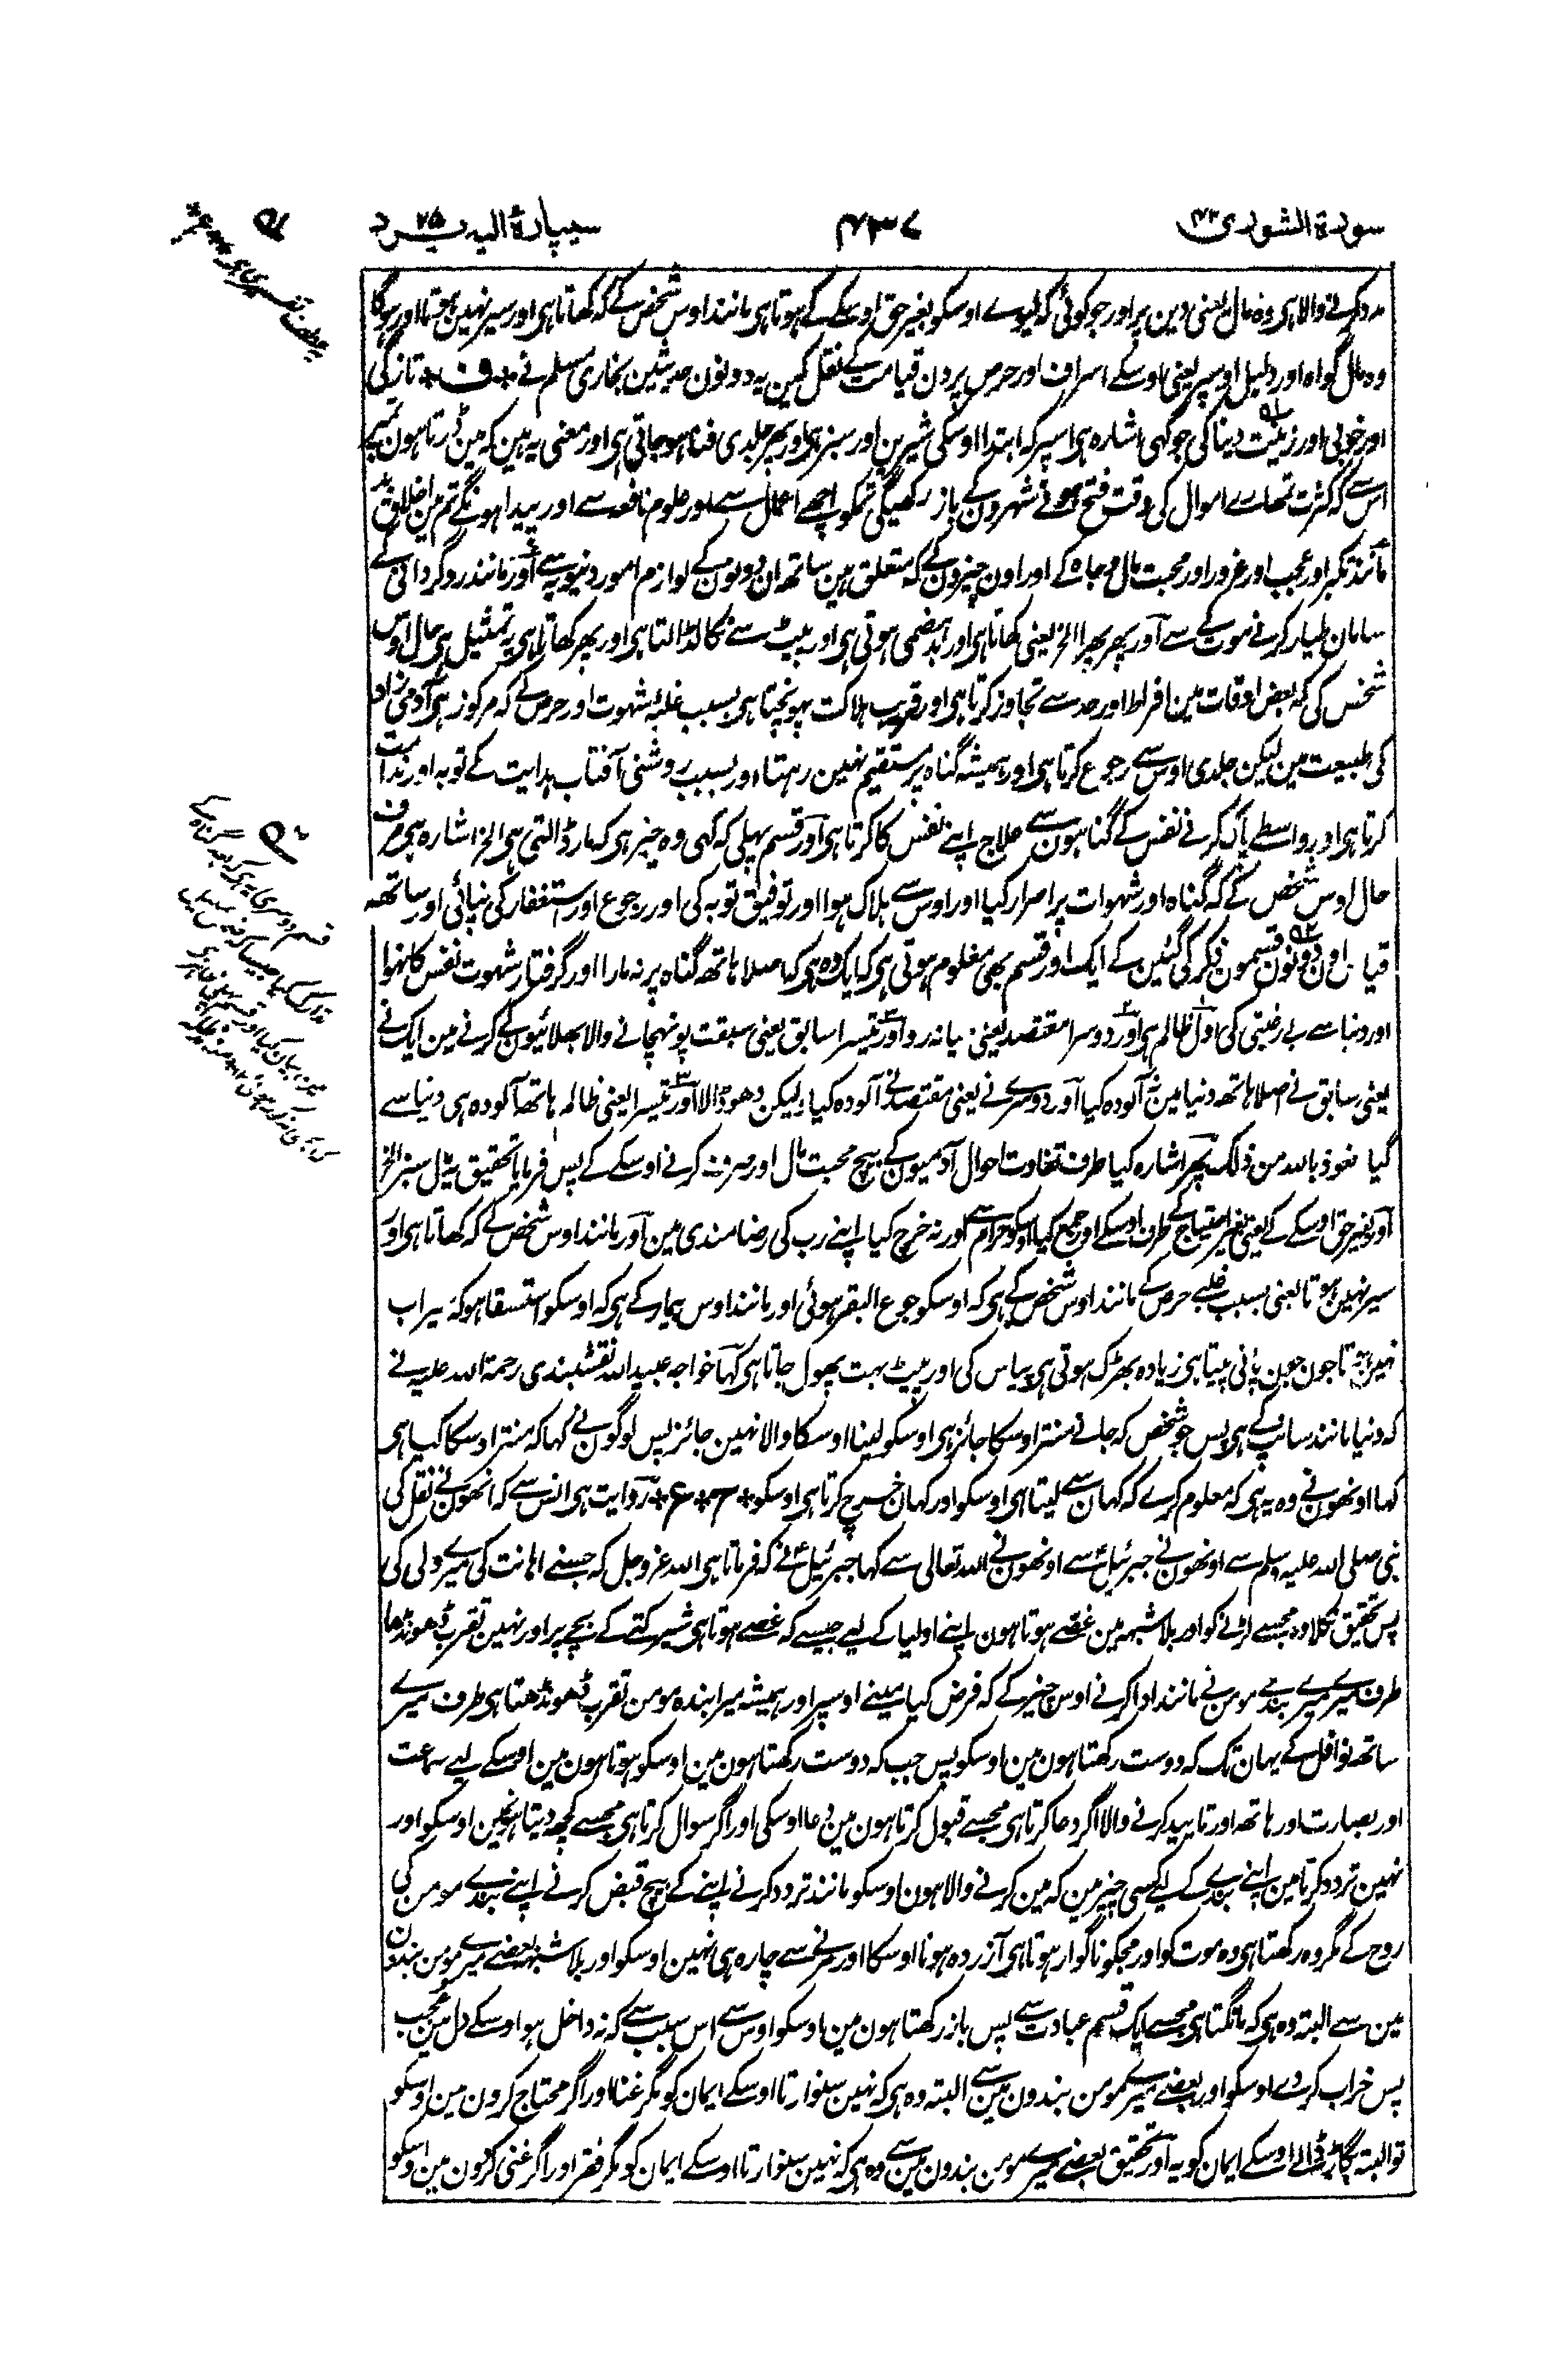 سورۃ الشوری ۴۲
۴۳۷
سیپارۂ الیہ یرد ۲۵
مدد کرنے والا ہی وہ مال یعنی دین پر اور جو کوئی کہ لیوے اوسکو بغیر حق اوسکے کے ہوتا ہی مانند اوس شخص کے کہ کھاتا ہی اور سیر نہین ہوتا اور ہوگا
وہ مال گواہ اور دلیل اوسپر یعنی اوسکے اسراف اور حرص پر دن قیامت کے نقل کین یہ دونون حدیثین بخاری مسلم نے * ف * تازگی
اور خوبی اور زینت دینا کی جو کہی اشارہ ہی اسپر کہ ابتدا اوسکی شیرین اور سبز ہی اور پھر جلدی فنا ہو جاتی ہی اور معنی یہ ہین کہ مین ڈرتا ہون تمپر
اس سے کہ کثرت تمھارے اموال کی وقت فتح ہونے شہرون کے باز رکھیگی تمکو اچھے اعمال سے اور علوم نافعہ سے اور پیدا ہونگے تم مین اخلاق بد
مانند تکبر اور عجب اور غرور اور محبت مال و جاہ کے اور اون چیزون کے کہ متعلق ہین ساتھ ان دونون کے لوازم امور دنیویہ سے اور مانند روگردانی کے
سامان طیار کرنے موت کے سے اور پھر پھرا الخ یعنی کھاتا ہی اور بدہضمی ہوتی ہی اور پیٹ سے نکالڈالتا ہی اور پھر کھاتا ہی یہ تمثیل ہی حال اوس
شخص کی کہ بعض اوقات مین افراط اور حد سے تجاوز کرتا ہی اور قریب ہلاکت پہونچتا ہی بسبب غلبۂ شہوت اور حرص کے کہ مرکوز ہی آدمی زاد
کی طبیعت مین لیکن جلدی اوس سے رجوع کرتا ہی اور ہمیشہ گناہ پر مستقیم نہین رہتا اور بسبب روشنی آفتاب ہدایت کے توبہ اور ندامت
کرتا ہی اور واسطے پاک کرنے نفس کے گناہون سے علاج اپنے نفس کا کرتا ہی اور قسم پہلی کہ کہی وہ چیز ہی کہ مار ڈالتی ہی الخ اشارہ ہی طرف
حال اوس شخص کے کہ گناہ اور شہوات پر اصرار کیا اور اوس سے ہلاک ہوا اور توفیق توبہ کی اور رجوع اور استغفار کی نپائی اور ساتھ
قیاس اون دونون قسمون ذکر کی گئین کے ایک اور قسم بھی معلوم ہوتی ہی کہ ایک وہ ہی کہ اصلا ہاتھ گناہ پر نہ مارا اور گرفتار شہوت نفس کا نہوا
اور دنیا سے بے رغبتی کی اول ظالم ہی اور دوسرا مقتصد یعنی میانہ رو اور تیسرا سابق یعنی سبقت پونہچانے والا بھلائیون کے کرنے مین ایک نے
یعنی سابق نے اصلا ہاتھ دنیا مین آلودہ کیا اور دوسرے نے یعنی مقتصد نے آلودہ کیا ولیکن دھو ڈالا اور تیسرا یعنی ظالم ہاتھ آلودہ ہی دنیا سے
گیا نعوذ باللہ من ذلک پھر اشارہ کیا طرف تفاوت احوال آدمیون کے بیچ محبت مال اور صرف کرنے اوسکے کے پس فرمایا تحقیق یہ مال سبز الخ
اور بغیر حق اوسکے کے یعنی بغیر احتیاج کے طرف اوسکے اور جمع کیا اوسکو حرام سے اور نہ خرچ کیا اپنے رب کی رضامندی مین اور مانند اوس شخص کے کہ کھاتا ہی اور
سیر نہین ہوتا یعنی بسبب غلبے حرص کے مانند اوس شخص کے ہی کہ اوسکو جوع البقر ہوئی اور مانند اوس بیمار کے ہی کہ اوسکو استسقا ہو کہ سیراب
نہین ہوتا جون جون پانی پیتا ہی زیادہ بھڑک ہوتی ہی پیاس کی اور پیٹ بہت پھول جاتا ہی کہا خواجہ عبید اللہ نقشبندی رحمۃ اللہ علیہ نے
کہ دنیا مانند سانپ کے ہی پس جو شخص کہ جانے منتر اوسکا جائز ہی اوسکو لینا اوسکا والا نہین جائز پس لوگون نے کہا کہ منتر اوسکا کیا ہی
کہا اونھون نے وہ یہ ہی کہ معلوم کرے کہ کہان سے لیتا ہی اوسکو اور کہان خرچ کرتا ہی اوسکو * ح * ع * روایت ہی انس سے کہ انھون نے نقل کی
نبی صلی اللہ علیہ وسلم سے اونھون نے جبرئیلؑ سے اونھون نے اللہ تعالی سے کہا جبرئیلؑ نے کہ فرماتا ہی اللہ عزوجل کہ جسنے اہانت کی میرے ولی کی
پس تحقیق نکلا وہ مجسے لڑنے کو اور بلا شبہہ مین غصے ہوتا ہون اپنے اولیا کے لیے جیسے کہ غصے ہوتا ہی شیر کتے کے بچے پر اور نہین تقرب ڈھونڈھا
طرف میرے میرے بندے مومن نے مانند ادا کرنے اوس چیز کے کہ فرض کیا مینے اوسپر اور ہمیشہ میرا بندہ مومن تقرب ڈھونڈھتا ہی طرف میرے
ساتھ نوافل کے یہان تک کہ دوست رکھتا ہون مین اوسکو پس جب کہ دوست رکھتا ہون مین اوسکو ہوتا ہون مین اوسکے لیے سماعت
اور بصارت اور ہاتھ اور تایید کرنے والا اگر دعا کرتا ہی مجسے قبول کرتا ہون مین دعا اوسکی اور اگر سوال کرتا ہی مجسے کچھ دیتا ہون مین اوسکو اور
نہین تردد کرتا مین اپنے بندے کے لیے کسی چیز مین کہ مین کرنے والا ہون اوسکو مانند تردد کرنے اپنے کے بیچ قبض کرنے اپنے بندے مومن کی
روح کے مکروہ رکھتا ہی وہ موت کو اور مجکو ناگوار ہوتا ہی آزردہ ہونا اوسکا اور مرنے سے چارہ ہی نہین اوسکو اور بلا شبہہ بعضے میرے مومن بندون
مین سے البتہ وہ ہی کہ مانگتا ہی مجسے ایک قسم عبادت سے پس باز رکھتا ہون مین اوسکو اوس سے اس سبب سے کہ نہ داخل ہو اوسکے دل مین عجب
پس خراب کر دے اوسکو اور بعضے میرے مومن بندون مین سے البتہ وہ ہی کہ نہین سنوارتا اوسکے ایمان کو مگر غنا اور اگر محتاج کرون مین اوسکو
تو البتہ بگاڑ ڈالے اوسکے ایمان کو یہ اور تحقیق بعضے میرے مومن بندون مین سے وہ ہی کہ نہین سنوارتا اوسکے ایمان کو مگر فقر اور اگر غنی کرون مین اوسکو